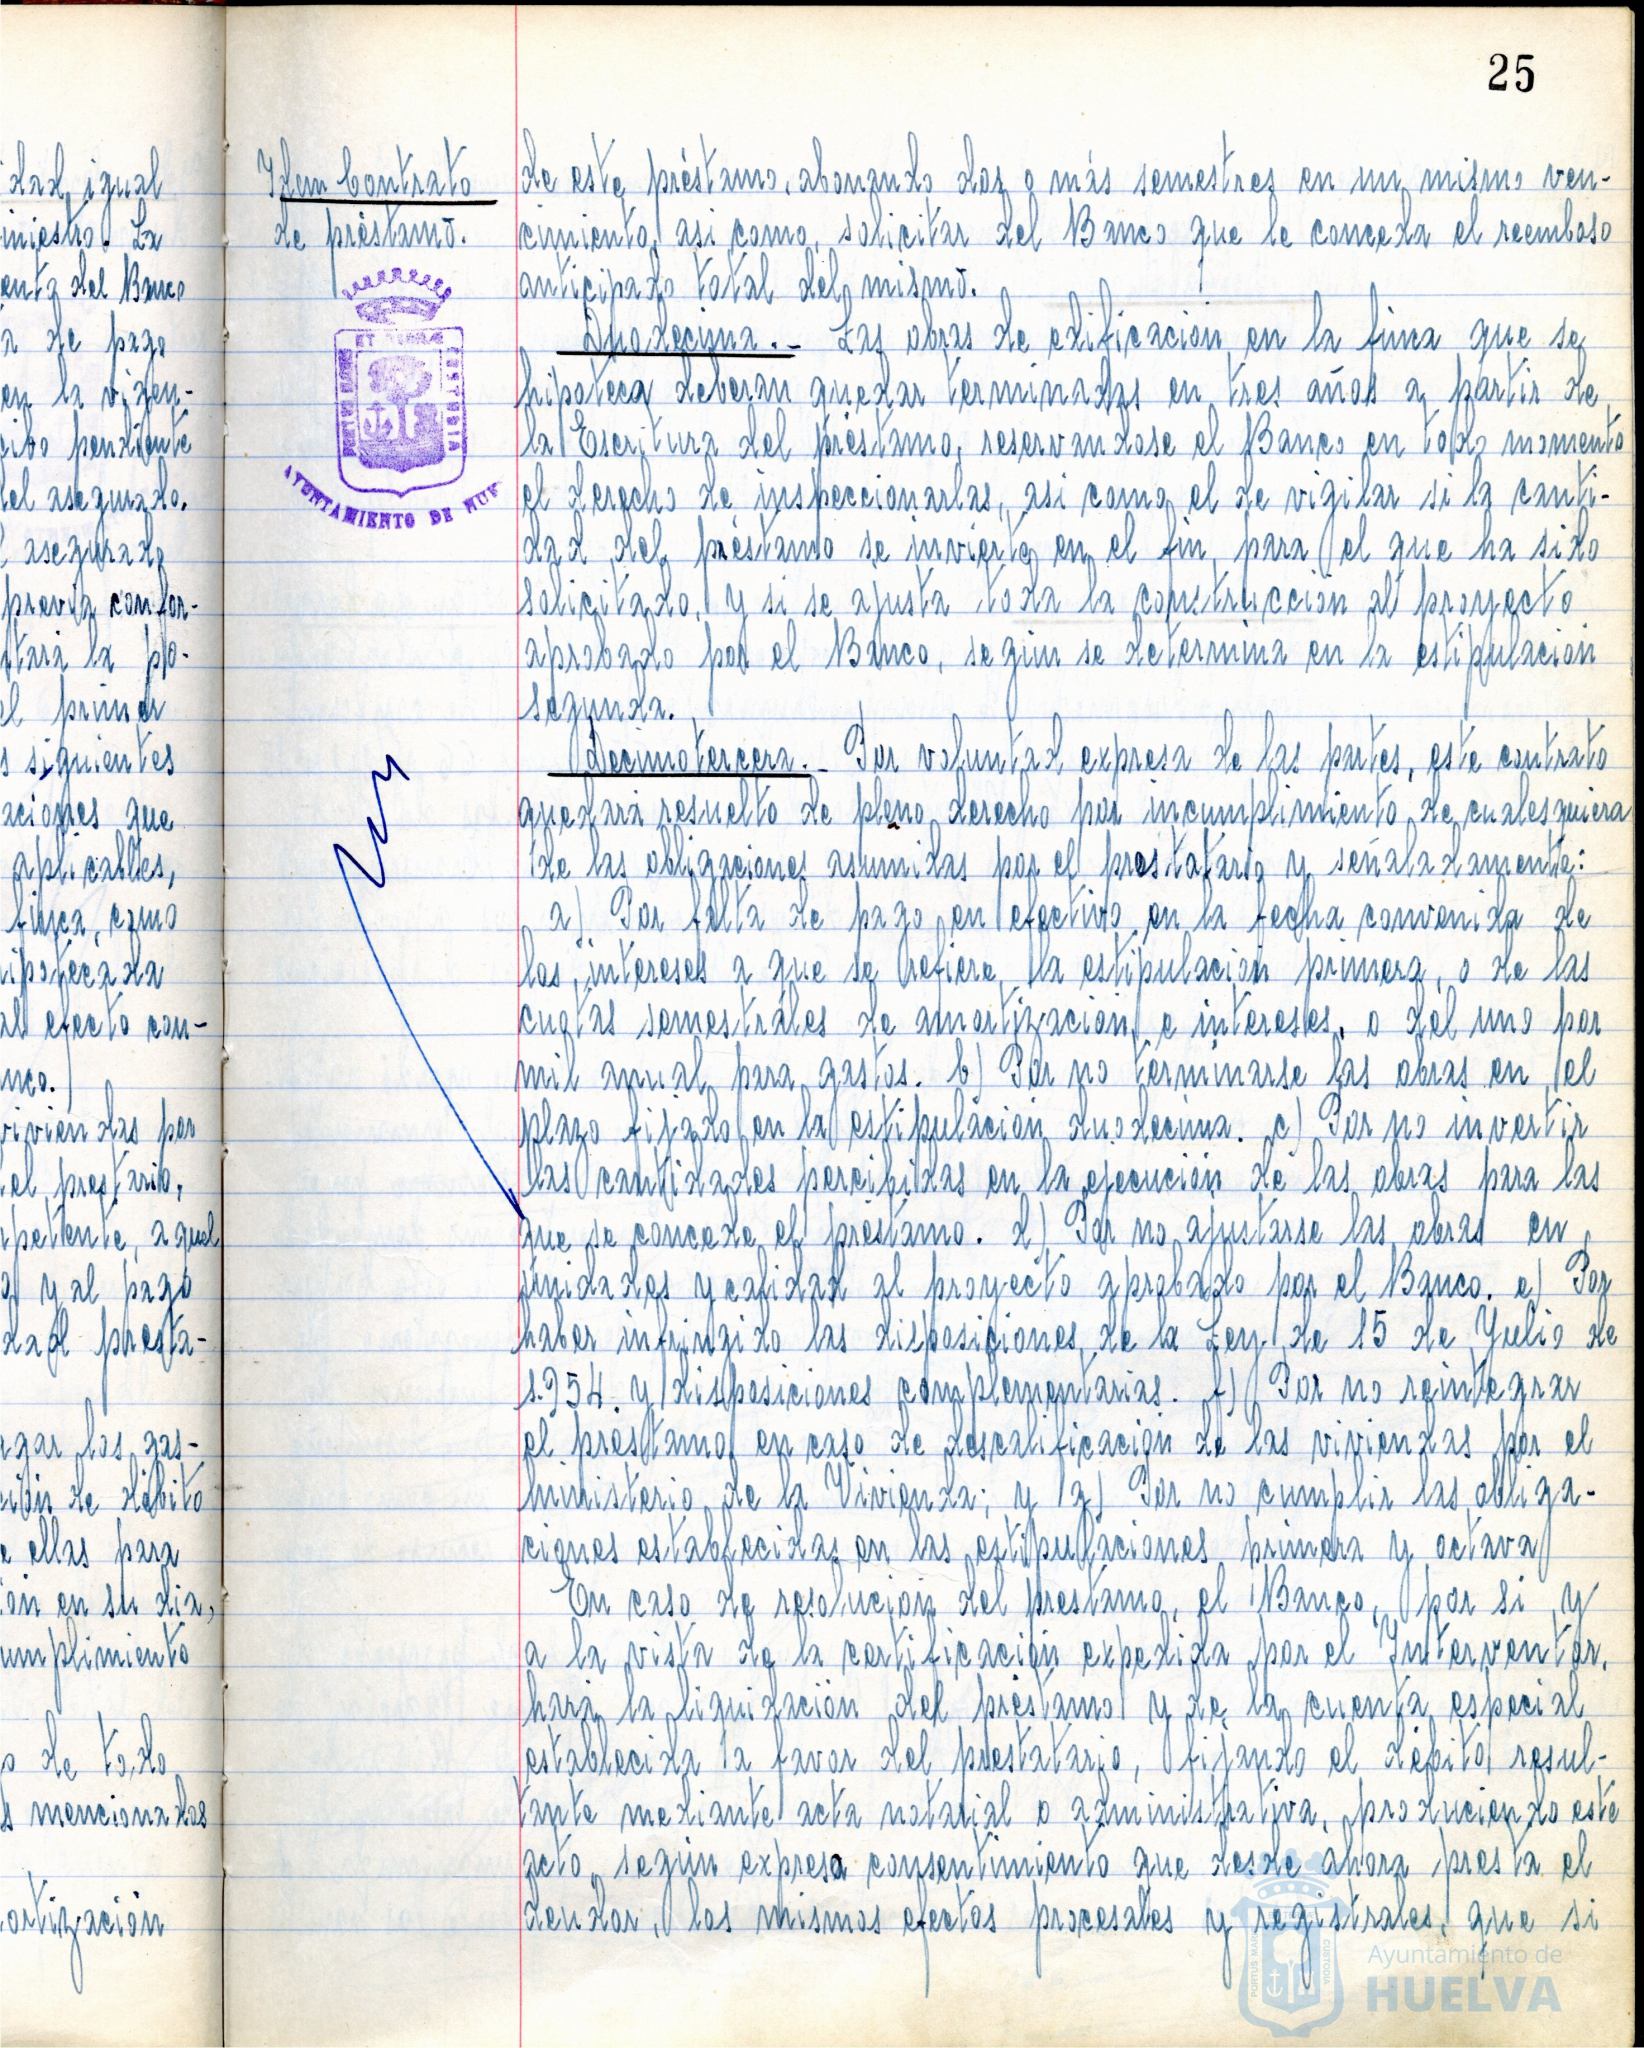 25
Idem Contrato
de préstamo.
ET TERRAE
PORTUS MARIS
CUSTODIA
AYUNTAMIENTO DE HUE
de este préstamo, abonando dos o más semestres en un mismo ven-
cimiento, asi como, solicitar del Banco que le conceda el reemboso
anticipado total del mismo.
Duodecima.- Las obras de edificación en la finca que se
hipoteca deberan quedar terminadas en tres años a partir de
la Escritura del préstamo, reservandose el Banco en todo momento
el derecho de inspeccionarlas, asi como el de vigilar si la canti-
dad del préstamo se invierte en el fin para el que ha sido
solicitado, y si se ajusta toda la construcción al proyecto
aprobado por el Banco, según se determina en la estipulación
segunda.
Decimotercera.- Por voluntad expresa de las partes, este contrato
quedará resuelto de pleno derecho por incumplimiento de cualesquiera
de las obligaciones asumidas por el prestatario y señaladamente:
a) Por falta de pago en efectivo en la fecha convenida de
los intereses a que se refiere la estipulación primera, o de las
cuotas semestrales de amortización e intereses, o del uno por
mil anual para gastos. b) Por no terminarse las obras en el
plazo fijado en la estipulación duodecima. c) Por no invertir
las cantidades percibidas en la ejecución de las obras para las
que se concede el préstamo. d) Por no ajustarse las obras en
unidades y calidad al proyecto aprobado por el Banco. e) Por
haber infringido las disposiciones de la Ley de 15 de Julio de
1.954 y disposiciones complementarias. f) Por no reintegrar
el préstamo en caso de descalificación de las viviendas por el
Ministerio de la Vivienda; y g) Por no cumplir las obliga-
ciones establecidas en las estipulaciones primera y octava
En caso de resolución del prestamo, el Banco, por si y
a la vista de la certificación expedida por el Interventor,
hará la liquidación del préstamo y de la cuenta especial
establecida a favor del prestatario, fijando el débito resul-
tante mediante acta notarial o administrativa, produciendo este
acto, según expreso consentimiento que desde ahora presta el
deudor, los mismos efectos procesales y registrales, que si
dad, igual
iniestro. La
enta del Banco
a de pago
en la vigen-
cibo pendiente
del asegurado.
l asegurado
previa confor-
ntará la pó-
el primer
s siguientes
aciones que
aplicables,
finca, como
ipotecada
al efecto con-
nco.)
viviendas por
el prestario,
mpetente, a quel
o y al pago
dad presta-
agar los gas-
ción de débito
e ellas para
ión en su dia,
umplimiento
o de todo
s mencionadas
ortización
PORTUS MARIS
CUSTODIA
Ayuntamiento de
HUELVA